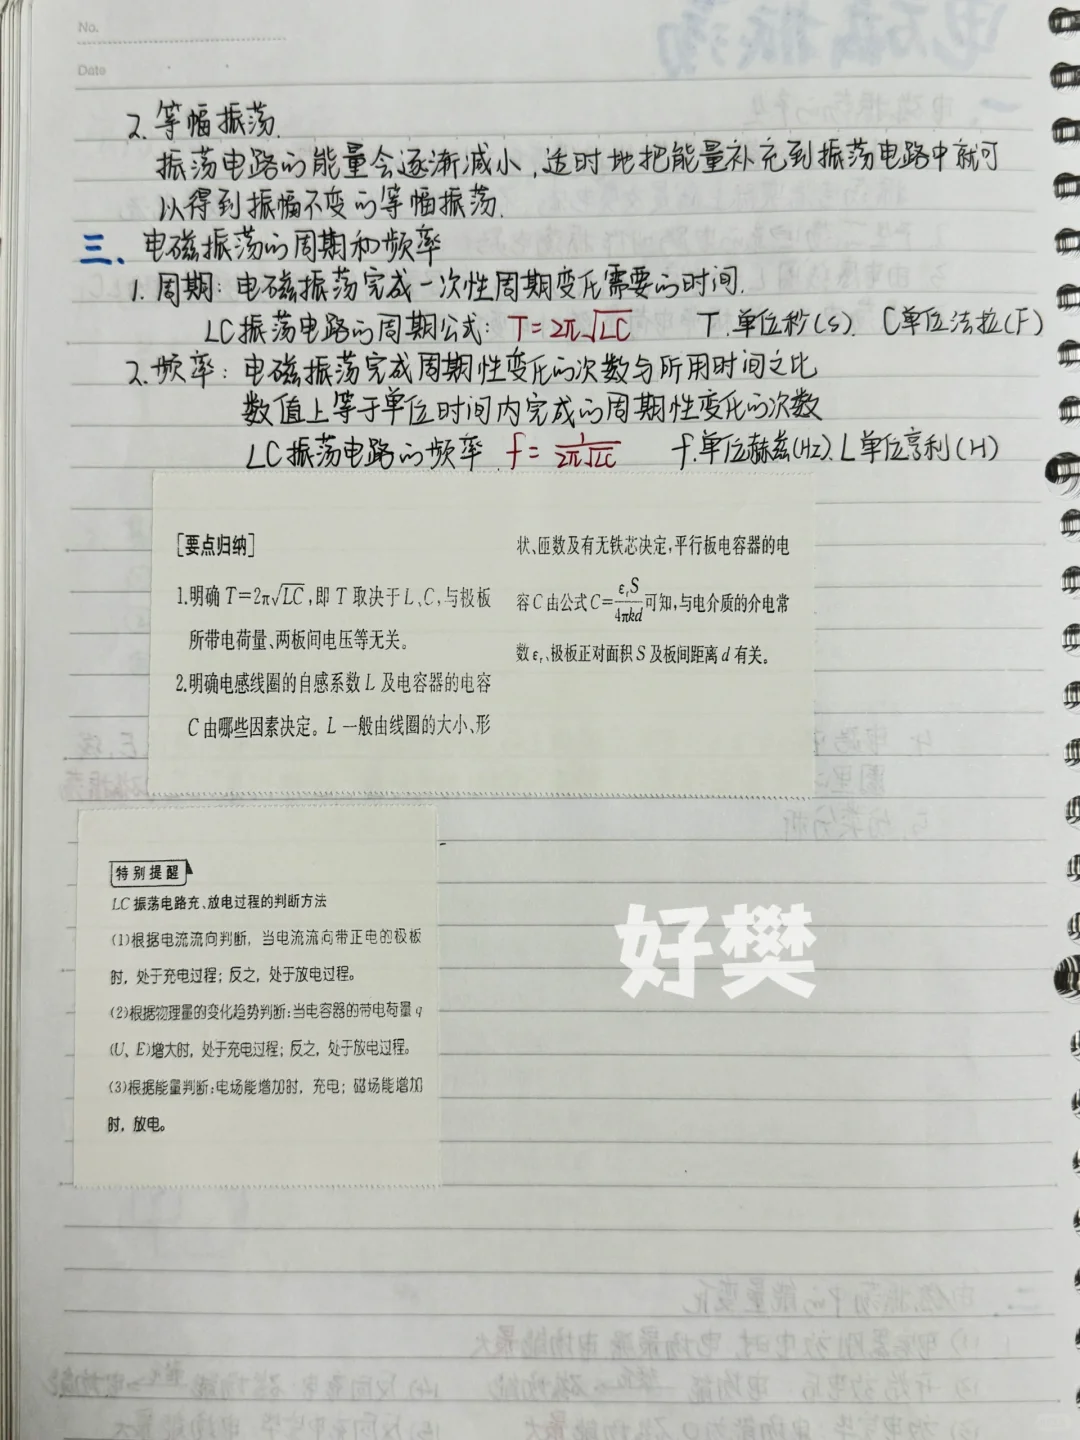 No.
Date
2. 等幅振荡.
振荡电路的能量会逐渐减小,适时地把能量补充到振荡电路中就可
以得到振幅不变的等幅振荡.
三、电磁振荡的周期和频率
1. 周期: 电磁振荡完成一次性周期变化需要的时间.
LC振荡电路的周期公式: T=2π√LC T.单位秒(s). C单位法拉(F)
2.频率: 电磁振荡完成周期性变化的次数与所用时间之比
数值上等于单位时间内完成的周期性变化的次数
LC振荡电路的频率 f=1/2π√LC f.单位赫兹(Hz).L单位亨利(H)
[要点归纳]
1.明确T=2π√LC,即T取决于L、C,与极板
所带电荷量、两板间电压等无关。
2.明确电感线圈的自感系数L及电容器的电容
C由哪些因素决定。L一般由线圈的大小、形
状、匝数及有无铁芯决定,平行板电容器的电
容C由公式C=εᵣS/4πkd可知,与电介质的介电常
数εᵣ、极板正对面积S及板间距离d有关。
特别提醒
LC振荡电路充、放电过程的判断方法
(1)根据电流流向判断,当电流流向带正电的极板
时,处于充电过程;反之,处于放电过程。
(2)根据物理量的变化趋势判断:当电容器的带电荷量q
(U、E)增大时,处于充电过程;反之,处于放电过程。
(3)根据能量判断:电场能增加时,充电;磁场能增加
时,放电。
好樊